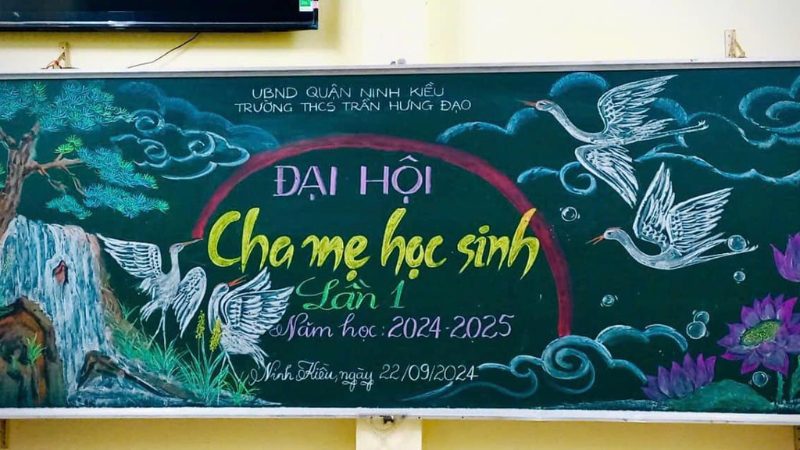 UBND QUẬN NINH KIỀU
TRƯỜNG THCS TRẦN HƯNG ĐẠO
ĐẠI HỘI
Cha mẹ học sinh
Lần 1
Năm học: 2024-2025
Ninh Kiều, ngày 22/09/2024